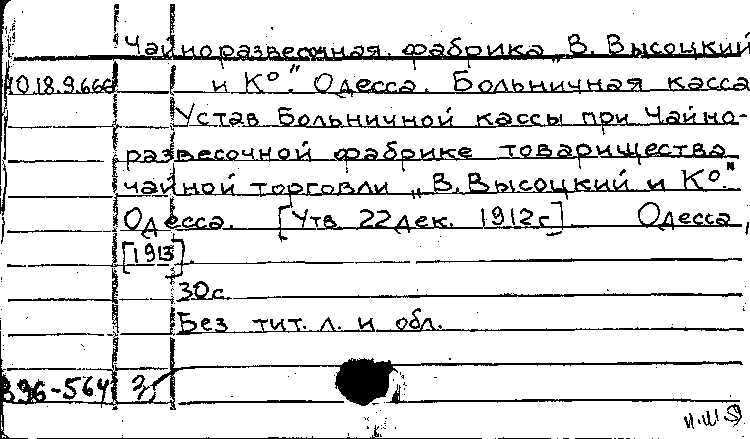 Чайноразвесочная фабрика „В. Высоцкий
10.18.9.666 и К°." Одесса. Больничная касса
Устав Больничной кассы при Чайно-
развесочной фабрике товарищества
чайной торговли „В. Высоцкий и К°."
Одесса. [Утв 22 дек. 1912г]. Одесса,
[1913].
30с.
Без тит. л. и обл.
396-564